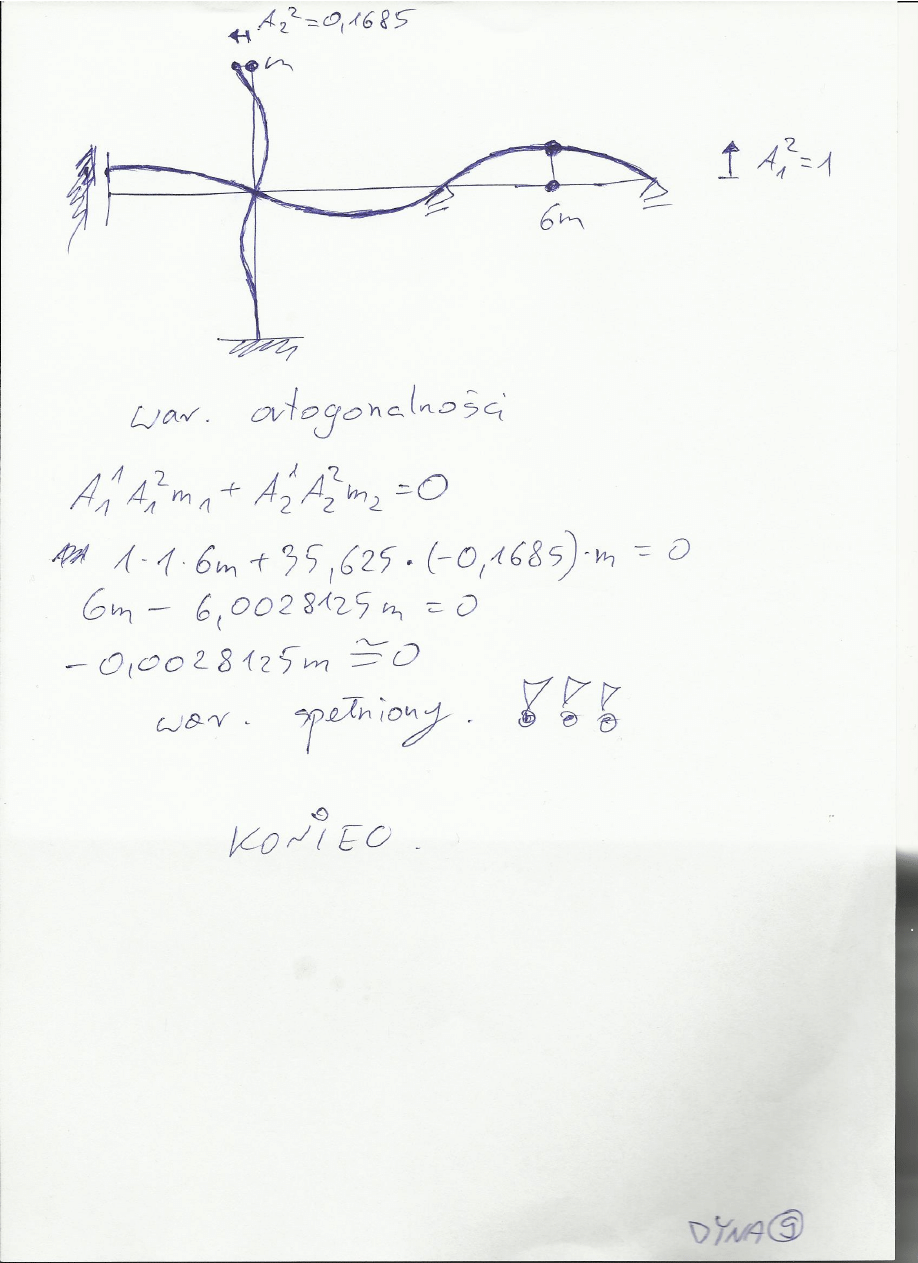 A₂²=0,1685
m
A₁²=1
6m
war. ortogonalności
A₁¹A₁²m₁+ A₂¹A₂²m₂=0
1·1·6m+35,625·(-0,1685)·m = 0
6m - 6,0028125m = 0
-0,0028125m ≅0
war. spełniony. !!!
KONIEC.
DYNA 9